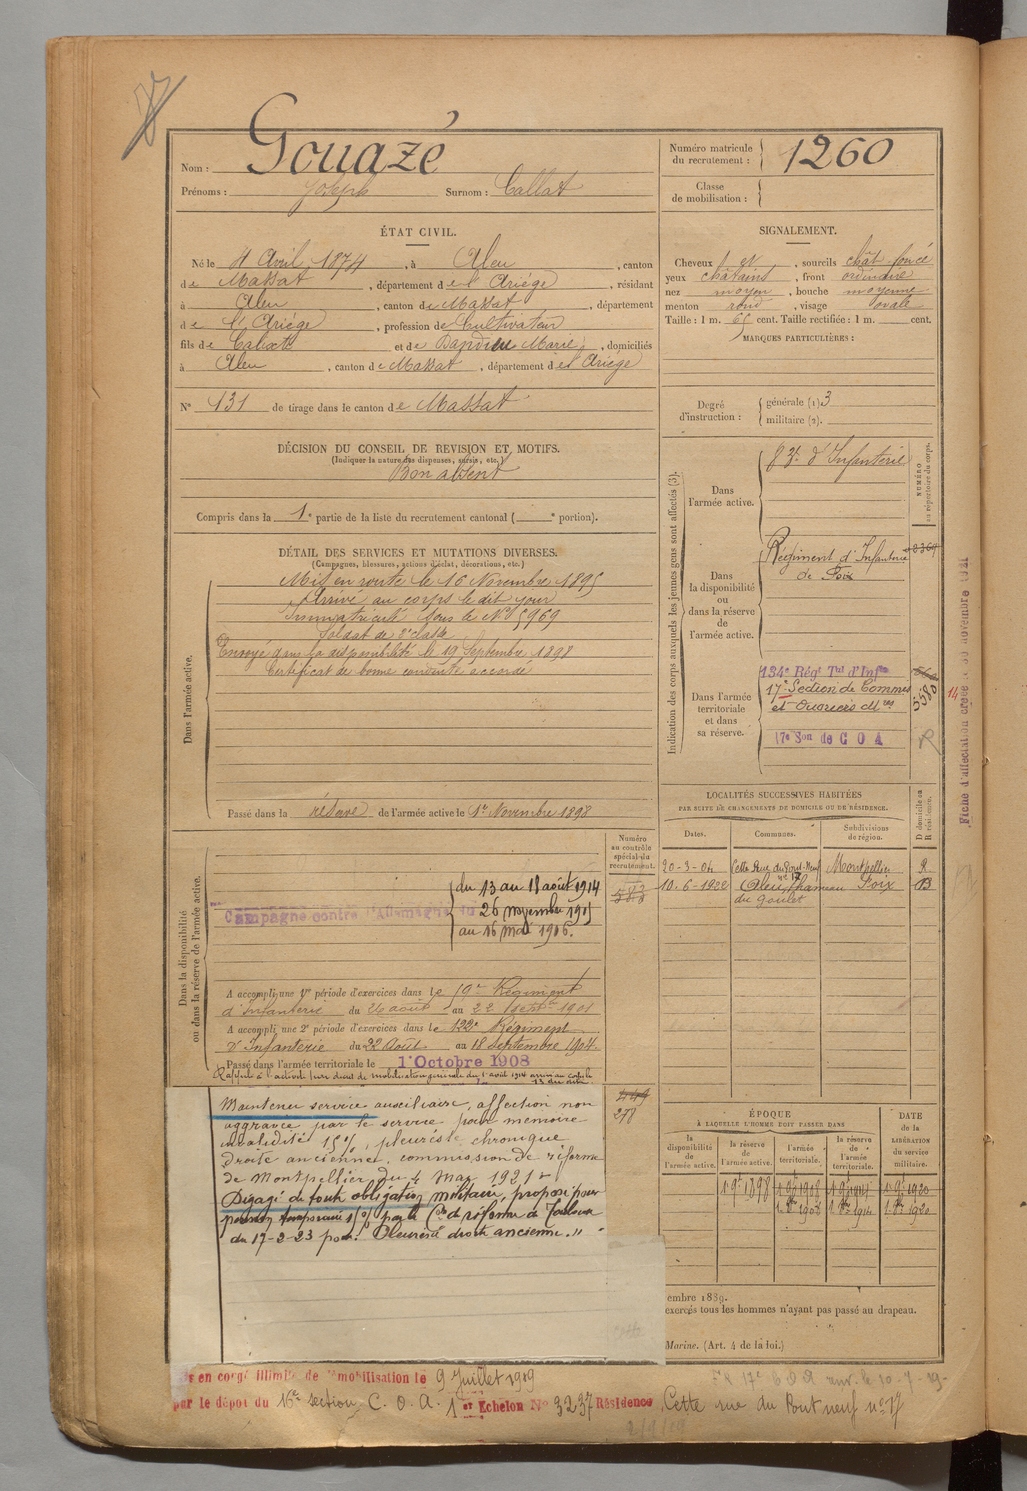 Nom : Gouazé
Prénoms : Joseph Surnom : Callat
Numéro matricule du recrutement : 1260
Classe de mobilisation :
ÉTAT CIVIL.
Né le 4 Avril 1874, à Aleu, canton
de Massat, département de l'Ariège, résidant
à Aleu, canton de Massat, département
de l'Ariège, profession de Cultivateur
fils de Calixte et de Marie, domiciliés
à Aleu, canton de Massat, département de l'Ariège
N° 131 de tirage dans le canton de Massat
SIGNALEMENT.
Cheveux et, sourcils chât. foncé
yeux châtains, front ordinaire
nez moyen, bouche moyenne
menton rond, visage ovale
Taille : 1 m. 65 cent. Taille rectifiée : 1 m. cent.
MARQUES PARTICULIÈRES :
Degré d'instruction : générale (1) 3
militaire (2).
DÉCISION DU CONSEIL DE REVISION ET MOTIFS.
(Indiquer la nature des dispenses, sursis, etc.)
Bon absent
Compris dans la 1e partie de la liste du recrutement cantonal ( e portion).
DÉTAIL DES SERVICES ET MUTATIONS DIVERSES.
(Campagnes, blessures, actions d'éclat, décorations, etc.)
Dans l'armée active.
Mis en route le 16 Novembre 1895
Arrivé au corps le dit jour
Immatriculé sous le N° 5969
Soldat de 2e classe
Envoyé dans la disponibilité le 19 Septembre 1898
Certificat de bonne conduite accordé
Passé dans la réserve de l'armée active le 1er Novembre 1898
Indication des corps auxquels les jeunes gens sont affectés (3).
NUMÉRO au répertoire du corps.
Dans l'armée active.
83e d'Infanterie
Dans la disponibilité ou dans la réserve de l'armée active.
Régiment d'Infanterie
de Foix
Dans l'armée territoriale et dans sa réserve.
134e Régt Tal d'Infie
17e Section de Commis
et Ouvriers Mres
17e Son de C O A
583
R
14
Fiche d'affectation créée le 30 novembre 1921
LOCALITÉS SUCCESSIVES HABITÉES
PAR SUITE DE CHANGEMENTS DE DOMICILE OU DE RÉSIDENCE.
Dates. Communes. Subdivisions de région. D domicile ou R résidence.
20-3-04 Cette Rue du Pont-Neuf n° 17 Montpellier R
10-6-1922 Aleu, hameau du Goulet Foix D
Dans la disponibilité ou dans la réserve de l'armée active.
Numéro au contrôle spécial du recrutement.
583
Campagne contre l'Allemagne du
du 13 au 18 août 1914
26 novembre 1915
au 16 mai 1916.
A accompli une 1re période d'exercices dans le 19e Régiment
d'Infanterie du 26 août au 22 septbre 1901
A accompli une 2e période d'exercices dans le 122e Régiment
d'Infanterie du 22 Août au 18 Septembre 1904.
Passé dans l'armée territoriale le 1er Octobre 1908
Rappelé à l'activité (par décret de mobilisation générale du 1er août 1914 arrivé au corps le
13 du dit.
449
278
Maintenu service auxiliaire, affection non
aggravée par le service pour mémoire
invalidité 15%, pleurésie chronique
droite ancienne, commission de réforme
de Montpellier du 4 Mar 1921
Dégagé de toute obligation militaire, proposé pour
pension temporaire par la Con de réforme de Toulouse
du 17-2-23 pour : Pleurésie droite ancienne. "
ÉPOQUE
À LAQUELLE L'HOMME DOIT PASSER DANS
DATE DE LA LIBÉRATION du service militaire.
la disponibilité de l'armée active. la réserve de l'armée active. l'armée territoriale. la réserve de l'armée territoriale.
1 9e 1898 1 9e 1908 1 9e 1914 1 9e 1920
1 8re 1908 1 8re 1914 1 8re 1920
embre 1889.
exercés tous les hommes n'ayant pas passé au drapeau.
Marine. (Art. 4 de la loi.)
is en congé illimité de démobilisation le 9 Juillet 1919
par le dépôt du 16e section C. O. A. 1er Echelon N° 3237 Résidence Cette rue du Pont neuf n° 17